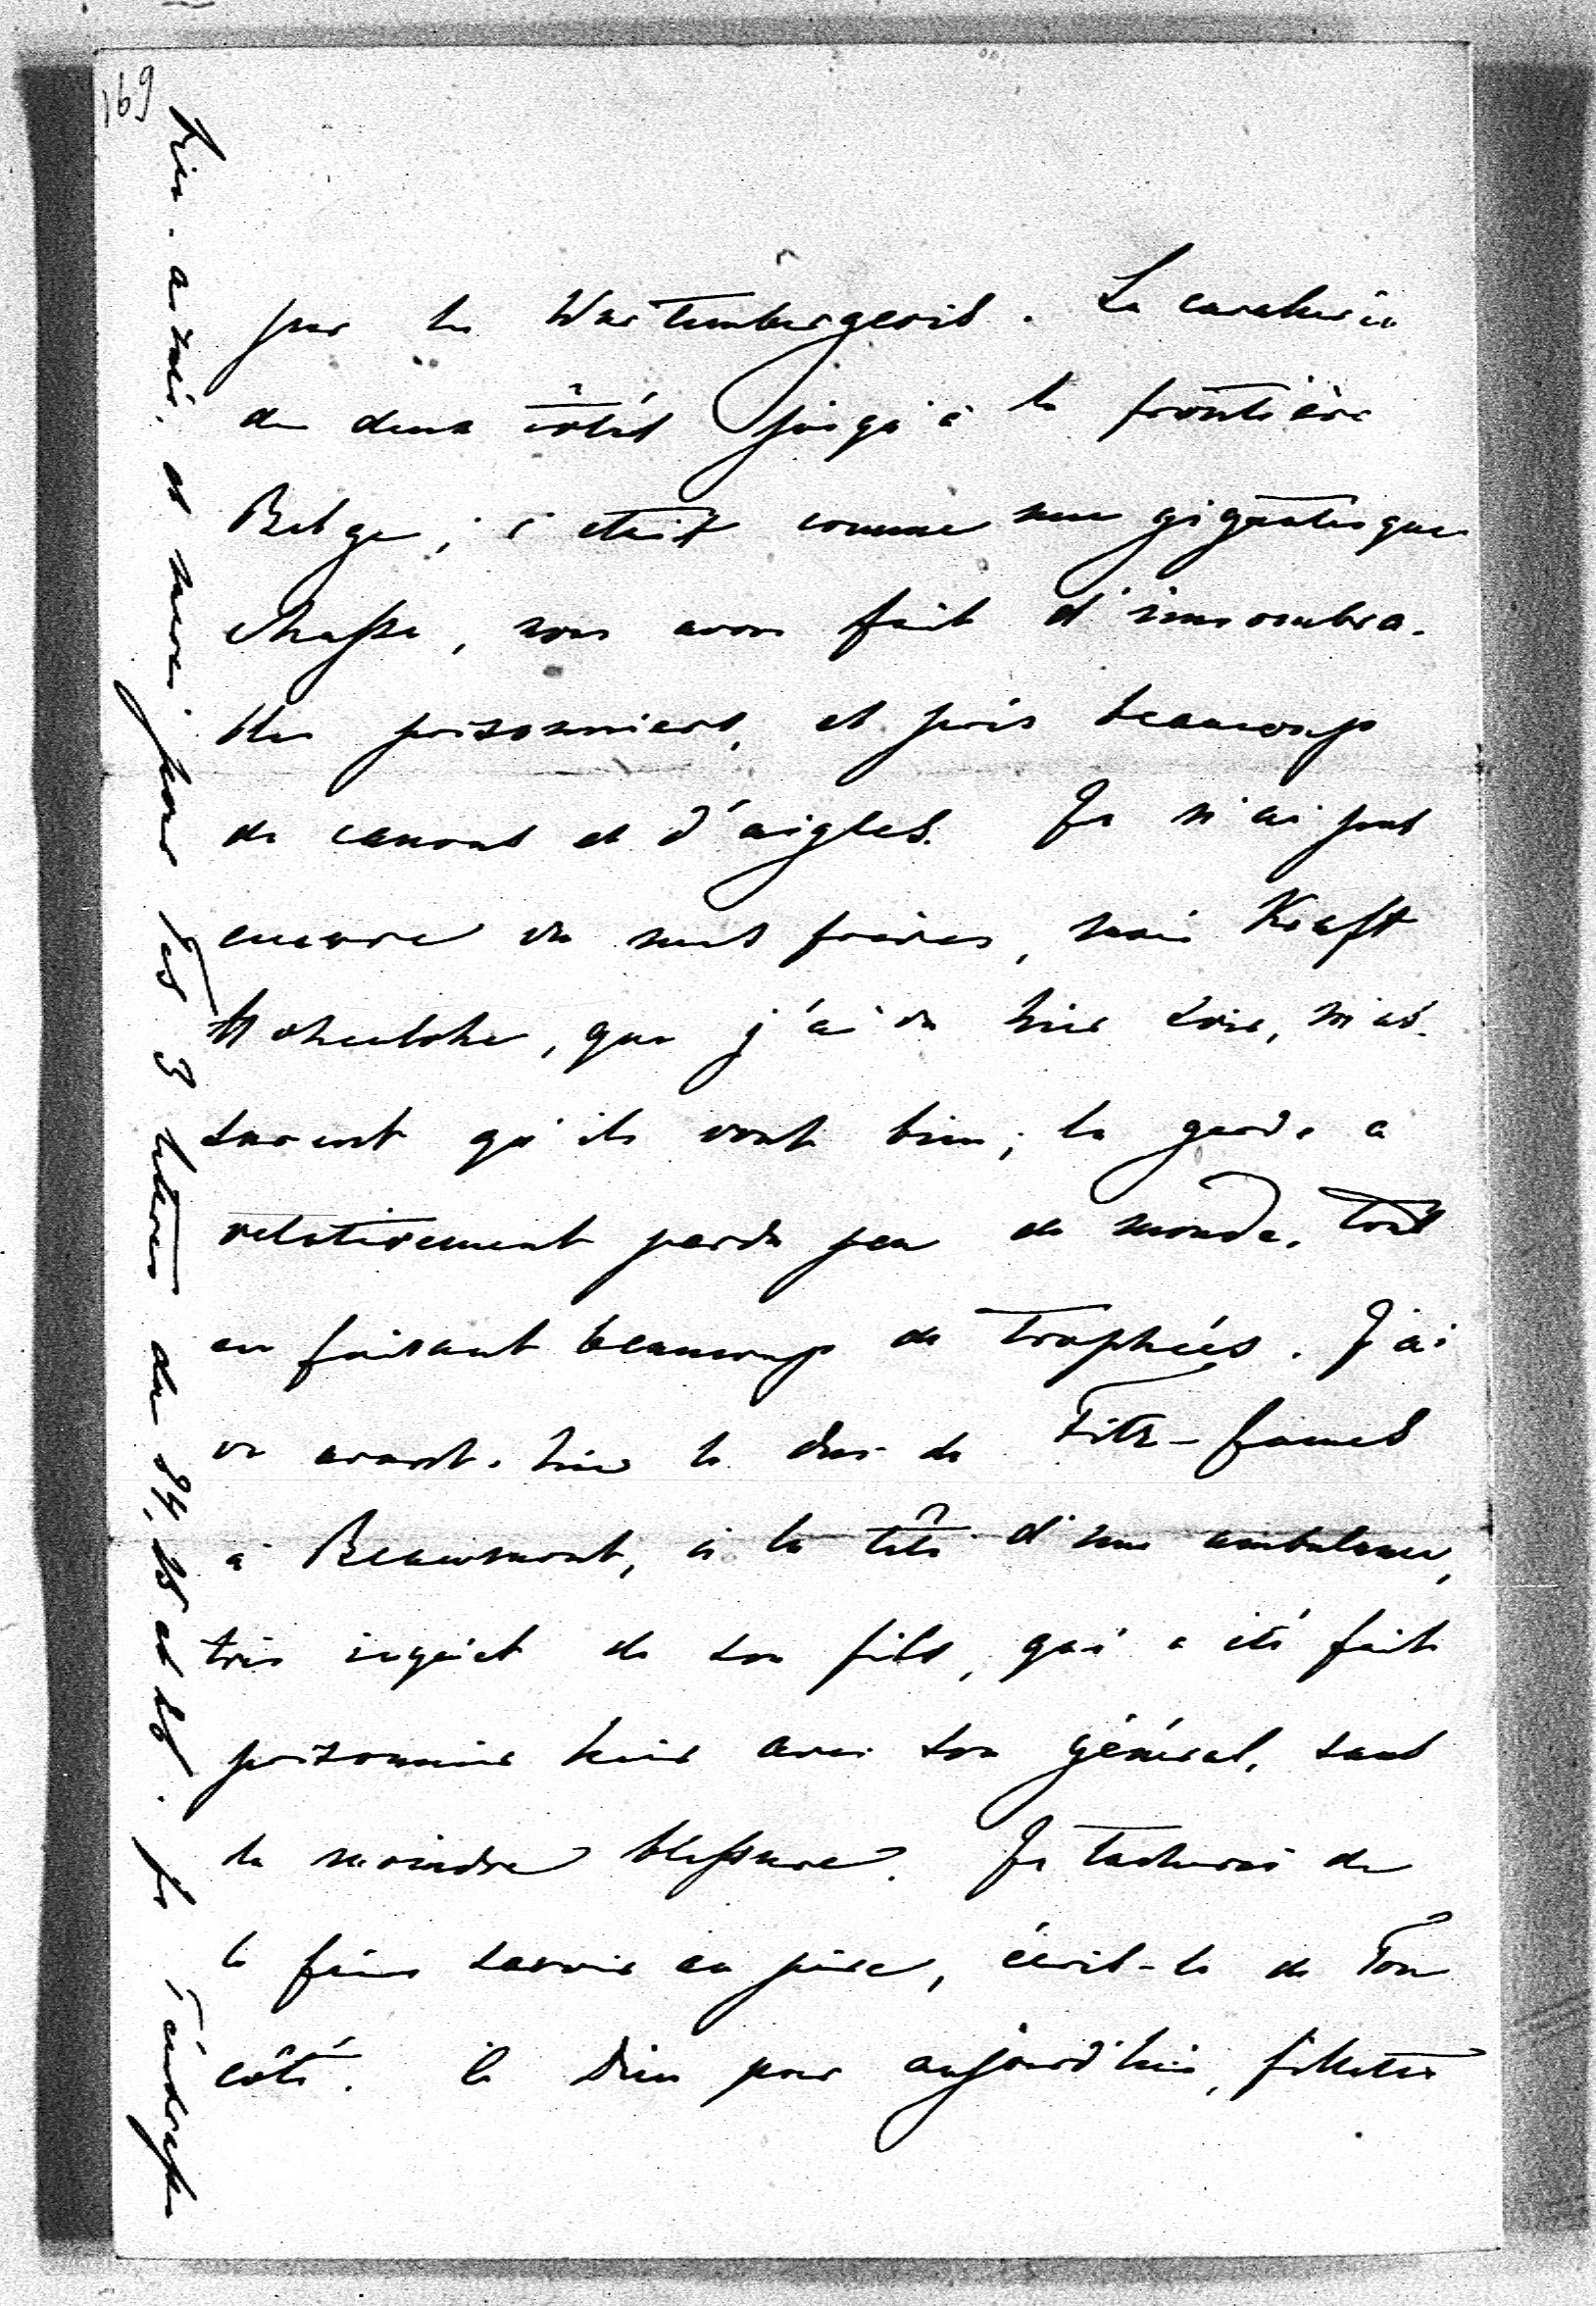 169
par les Wurtembergeois. La cavalerie
de deux côtés jusqu'à la frontière
Belge; c'etait comme une gigantesque
chasse, nous avons fait d'innombra-
bles prisonniers, et pris beaucoup
de canons et d'aigles. Je n'ai pas
encore vu mes frères, mais Kraft
Hohenlohe, que j'ai vu hier soir, m'as-
surent qu'ils vont bien; la garde a
relativement perdu peu de monde, tout
en faisant beaucoup de trophées. J'ai
vu avant-hier le duc de Fitz-James
à Beaumont, à la tête d'une ambulance,
très inquiet de son fils, qui a été fait
prisonnier hier avec son général, sans
la moindre blessure. Je tacherai de
le faire savoir au père, écris-le de Ton
côté. à Dieu pour aujourd'hui, fillette
très-aimée, et merci pour Tes 3 lettres du 24, 25 et 26. Je T'embrasse